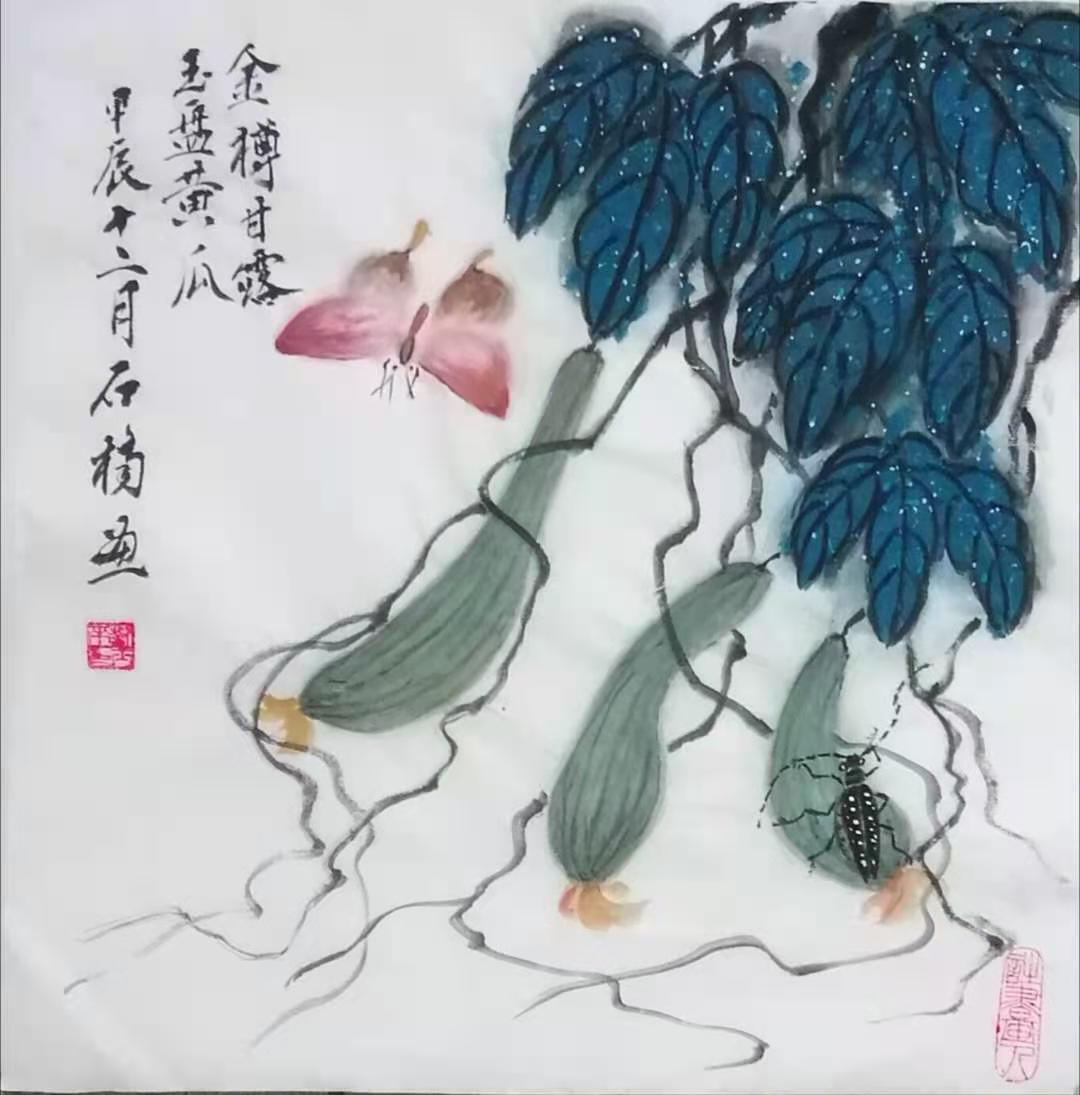 金樽甘露
玉盘黄瓜
甲辰十二月石桥画